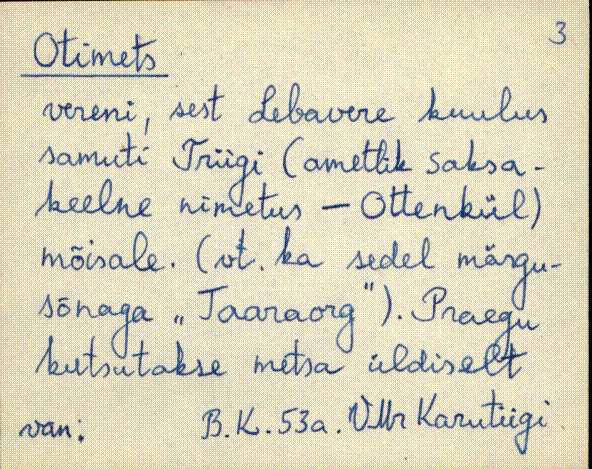 3
Otimets
vereni, sest Lebavere kuulus
samuti Triigi (ametlik saksa-
keelne nimetus – Ottenkül)
mõisale. (vt. ka sedel märgu-
sõnaga „Taaraorg"). Praegu
kutsutakse metsa üldiselt
van: B.K. 53a. VMr Karutiigi